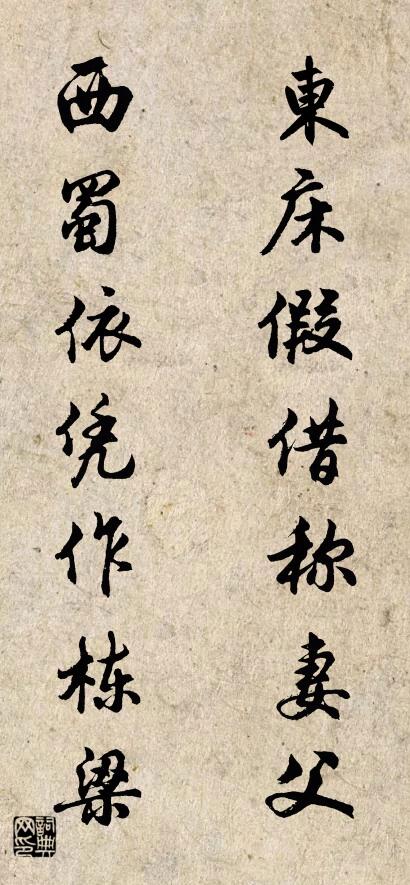 東床假借称妻父
西蜀依凭作栋梁
詞典网印